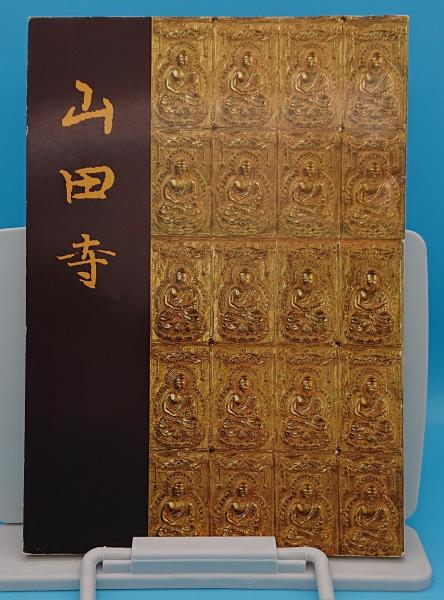 山田寺